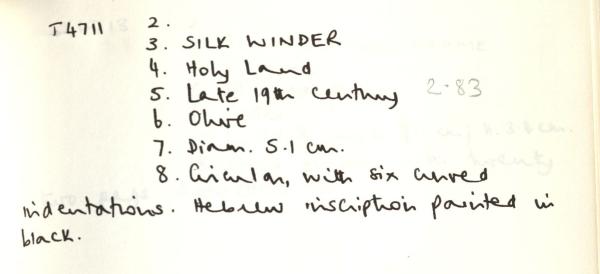 T4711 2.
3. SILK WINDER
4. Holy Land
5. Late 19th century 2.83
6. Olive
7. Diam. 5.1 cm.
8. Circular, with six curved
indentations. Hebrew inscription painted in
black.